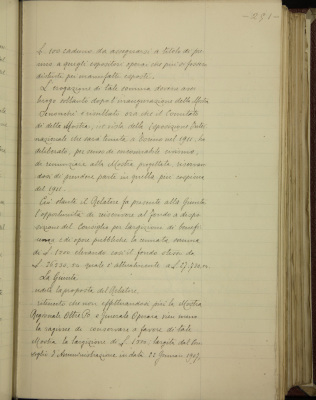 — 291 —
L. 200 cadauno da assegnarsi a titolo di pre-
mio a quegli espositori operai che più si fossero
distinti per manufatti esposti.
L'erogazione di tale somma doveva aver
luogo soltanto dopo l'inaugurazione della Mostra
è risultato ora che il Comitato
di detta Mostra, in vista della Esposizione Inter-
nazionale che sarà tenuta a Torino nel 1911, ha
deliberato, per ovvie ragioni,
di rinunziare alla Mostra progettata, riservan-
dosi di prendere parte in quella più cospicua
del 1911.
Ciò stante il Relatore fa presente alla Giunta
l'opportunità di riversare al fondo a dispo-
sizione del Consiglio per largizioni di benefi-
cenza e di opere pubbliche la somma
di L. 1000 elevando così il fondo stesso da
L. a L.
La Giunta
udita la proposta del Relatore,
ritenuto che non effettuandosi più la Mostra
Regionale e Generale Operaia vien meno
la ragione di conservare a favore di tale
Mostra la largizione di L. 1000, largita dal Con-
siglio d'Amministrazione in data 22 Gennaio